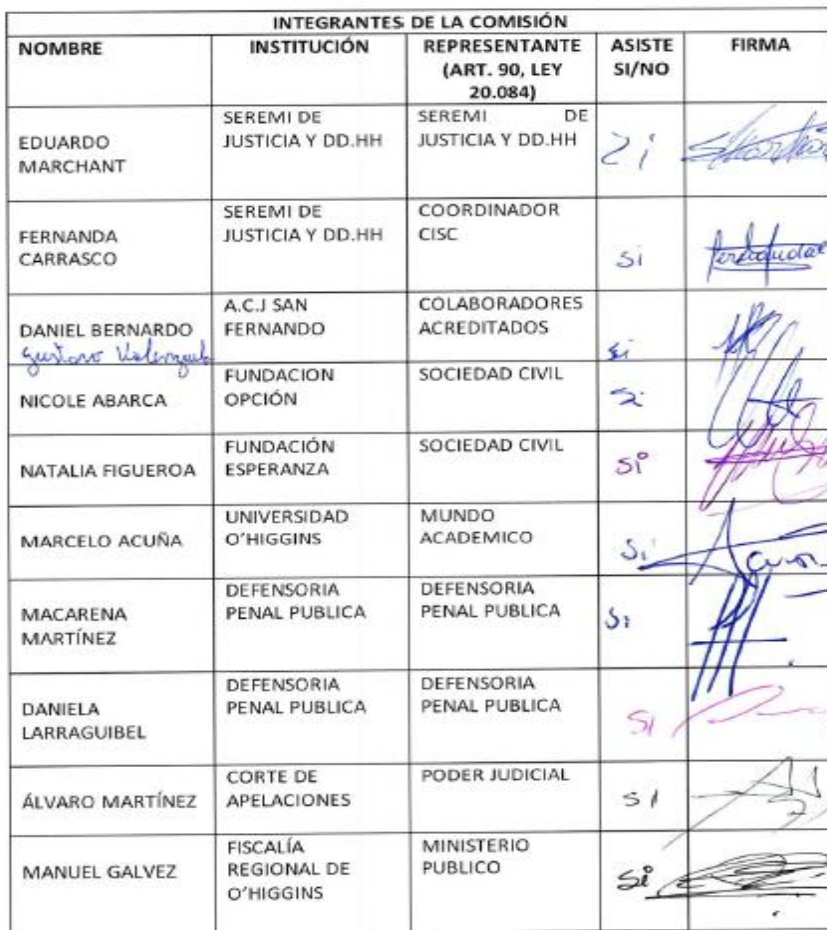 INTEGRANTES DE LA COMISIÓN
NOMBRE INSTITUCIÓN REPRESENTANTE (ART. 90, LEY 20.084) ASISTE SI/NO FIRMA
EDUARDO MARCHANT SEREMI DE JUSTICIA Y DD.HH SEREMI DE JUSTICIA Y DD.HH Si
FERNANDA CARRASCO SEREMI DE JUSTICIA Y DD.HH COORDINADOR CISC Si
DANIEL BERNARDO Gustavo Valenzuela A.C.J SAN FERNANDO COLABORADORES ACREDITADOS si
NICOLE ABARCA FUNDACION OPCIÓN SOCIEDAD CIVIL Si
NATALIA FIGUEROA FUNDACIÓN ESPERANZA SOCIEDAD CIVIL Si
MARCELO ACUÑA UNIVERSIDAD O'HIGGINS MUNDO ACADEMICO Si
MACARENA MARTÍNEZ DEFENSORIA PENAL PUBLICA DEFENSORIA PENAL PUBLICA Si
DANIELA LARRAGUIBEL DEFENSORIA PENAL PUBLICA DEFENSORIA PENAL PUBLICA SI
ÁLVARO MARTÍNEZ CORTE DE APELACIONES PODER JUDICIAL SI
MANUEL GALVEZ FISCALÍA REGIONAL DE O'HIGGINS MINISTERIO PUBLICO Si